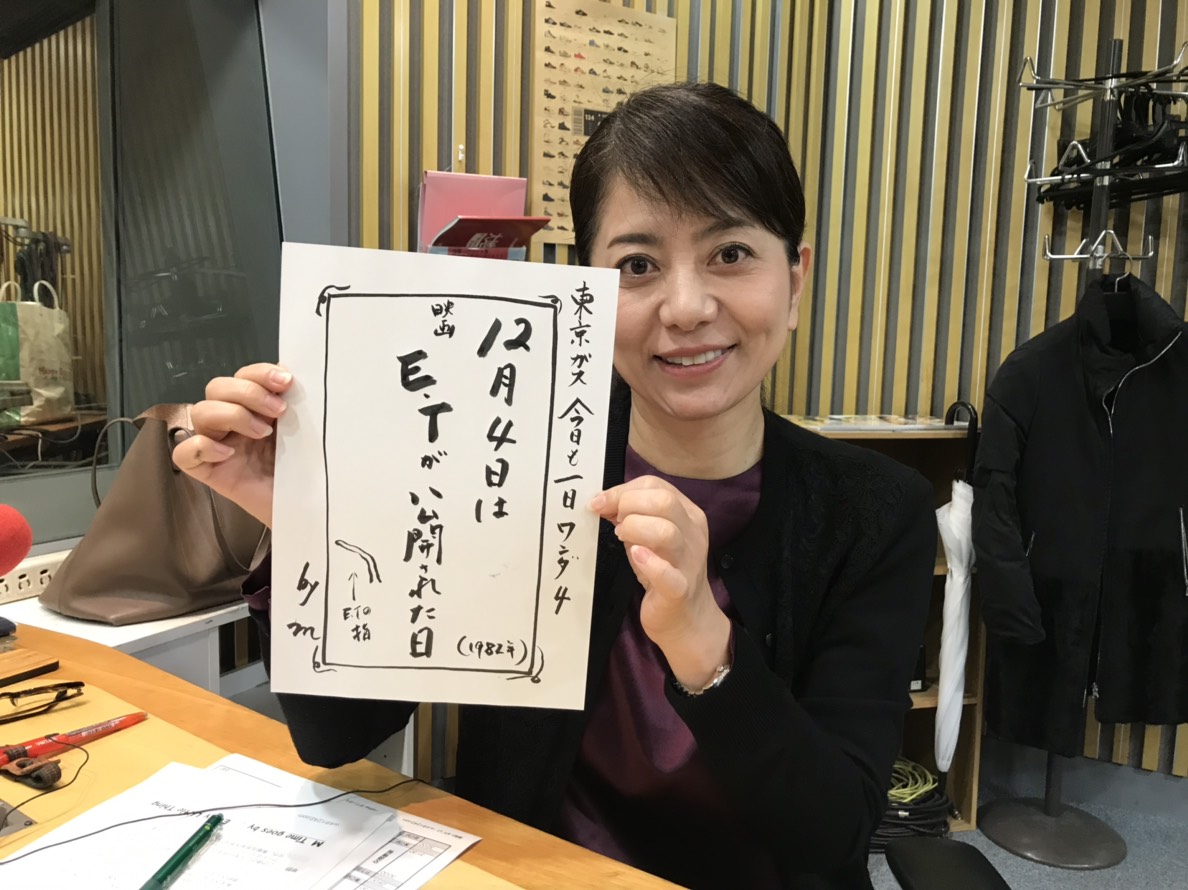 東京ガス 今日も一日ワンダ4
12月4日は
映画
E.Tが公開された日
(1982年)
E.Tの指
by m
M. Time goes by